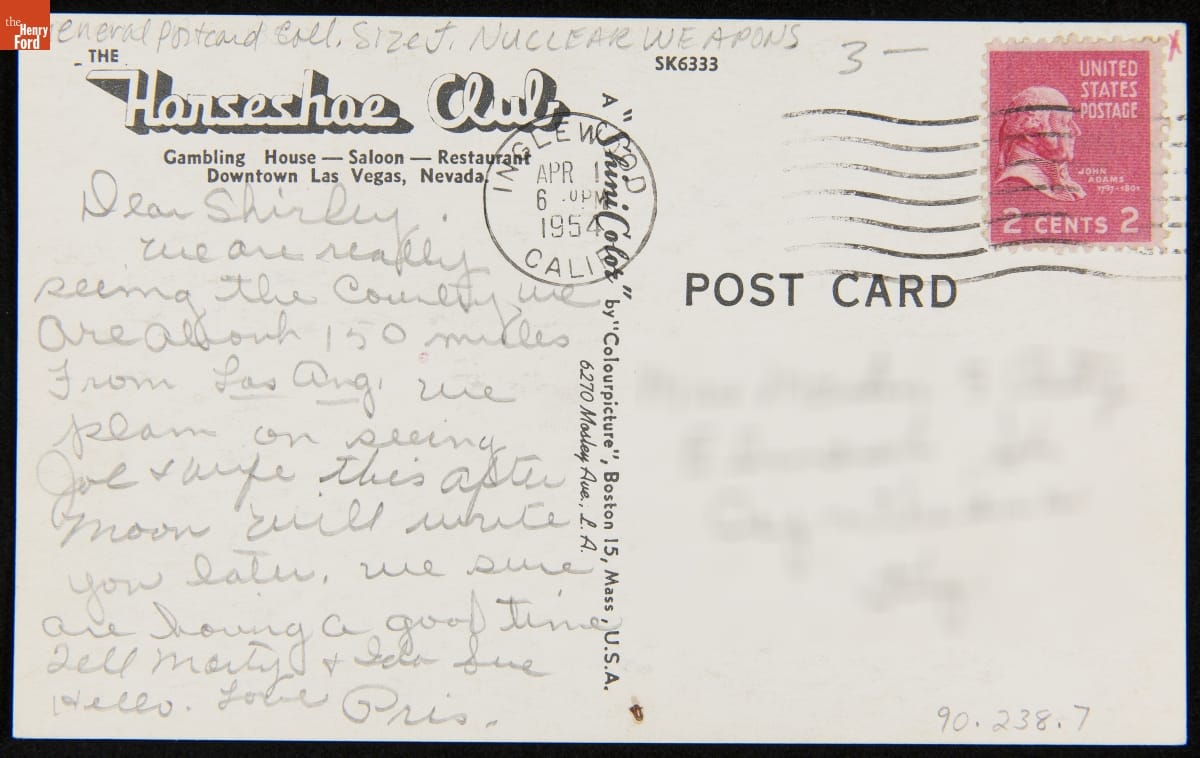 the Henry Ford
General Postcard Coll. Size J NUCLEAR WEAPONS
3 —
x
THE
Horseshoe Club
Gambling House — Saloon — Restaurant
Downtown Las Vegas, Nevada.
SK6333
Dear Shirley.
we are really
seeing the Country we
are about 150 miles
From Las Ang. we
plan on seeing
Joe & wife this after
noon will write
you later. we sure
are having a good time
Tell Marty & Ida Sue
Hello. Love Pris.
INGLEWOOD
APR 1
6 PM
1954
CALIF.
A "ShiniColor" by "Colourpicture", Boston 15, Mass., U.S.A.
6270 Mosley Ave., L. A.
UNITED
STATES
POSTAGE
JOHN
ADAMS
1797-1801
2 CENTS 2
POST CARD
90.238.7